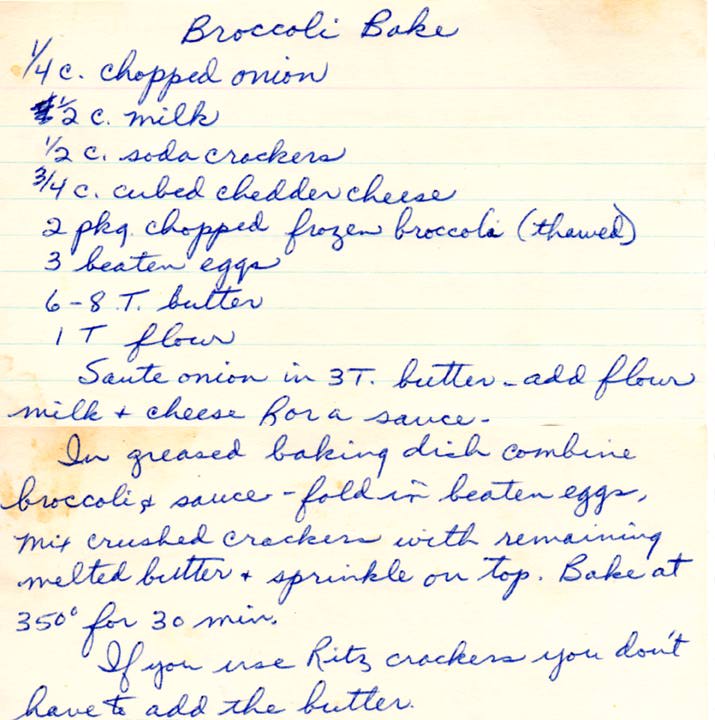 Broccoli Bake
1/4 c. chopped onion
1/2 c. milk
1/2 c. soda crackers
3/4 c. cubed chedder cheese
2 pkg. chopped frozen broccoli (thawed)
3 beaten eggs
6-8 T. butter
1 T flour
Saute onion in 3T. butter - add flour
milk + cheese for a sauce -
In greased baking dish combine
broccoli & sauce - fold in beaten eggs,
Mix crushed crackers with remaining
melted butter + sprinkle on top. Bake at
350° for 30 min.
If you use Ritz crackers you don't
have to add the butter.